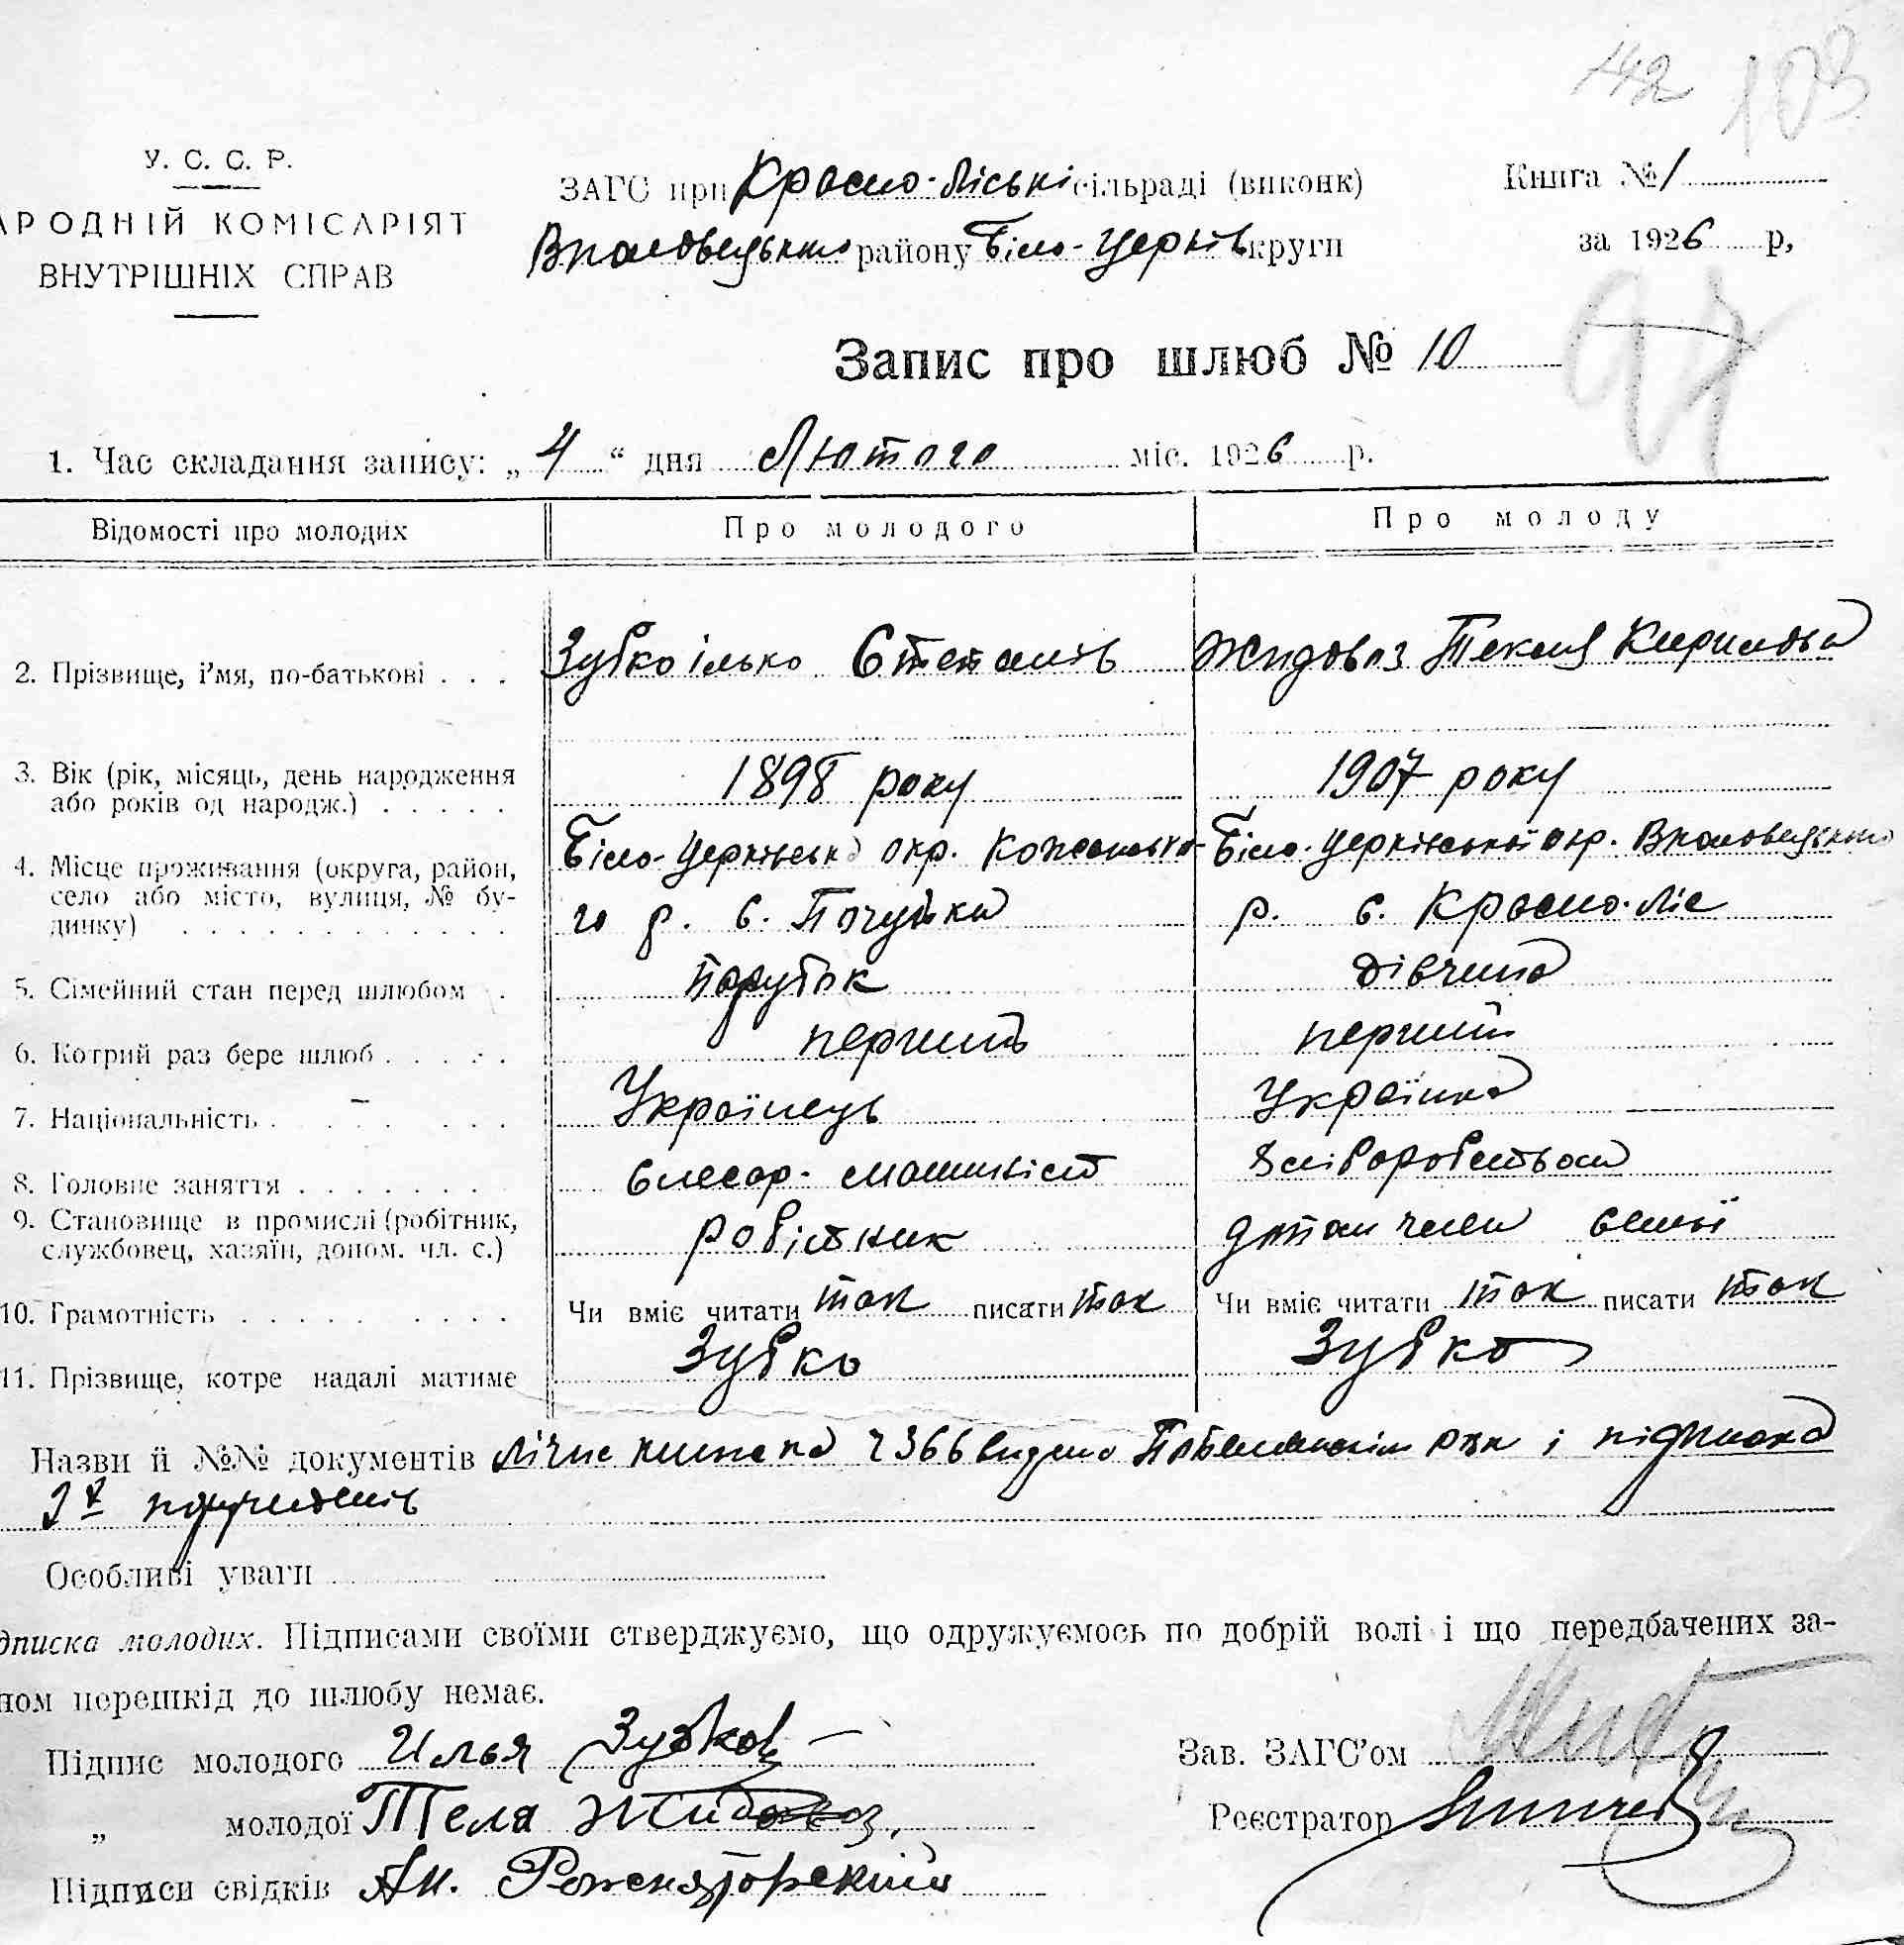 142 103
У. С. С. Р.
АРОДНІЙ КОМІСАРІЯТ
ВНУТРІШНІХ СПРАВ
ЗАГС при Красно-Ліські сільраді (виконк)
району Біло-Церків круги
Книга № 1
за 1926 р,
97
Запис про шлюб № 10
1. Час складання запису: „ 4 “ дня Лютого міс. 1926 р.
Відомості про молодих Про молодого Про молоду
2. Прізвище, і’мя, по-батькові . . . Зубко ілько Степанів Жидовоз Текля Кирилова
3. Вік (рік, місяць, день народження
або років од народж.) . . . . . 1898 року 1907 року
4. Місце проживання (округа, район,
село або місто, вулиця, № бу-
динку) . . . . . . . . . . . .
Біло-Церківськ окр. Кожансько-
го р. с. Почуйки
Біло-Церківської окр.
р. с. Красно-Ліс
5. Сімейний стан перед шлюбом . парубок дівчина
6. Котрий раз бере шлюб . . . . . перший перший
7. Національність . . . . . . . Українець Українка
8. Головне заняття . . . . . . . слесар-машиніст
9. Становище в промислі (робітник,
службовец, хазяїн, допом. чл. с.) робітник член семьї
10. Грамотність . . . . . . . . . Чи вміє читати так писати так Чи вміє читати так писати так
11. Прізвище, котре надалі матиме Зубко Зубко
Назви й №№ документів Лічна книжка 2366 видано і підписка
Особливі уваги
дписка молодих. Підписами своїми стверджуємо, що одружуємось по добрій волі і що передбачених за-
ном перешкід до шлюбу немає.
Підпис молодого Илья Зубков
„ молодої Теля Жидовоз,
Підписи свідків Ан.
Зав. ЗАГС’ом
Реєстратор